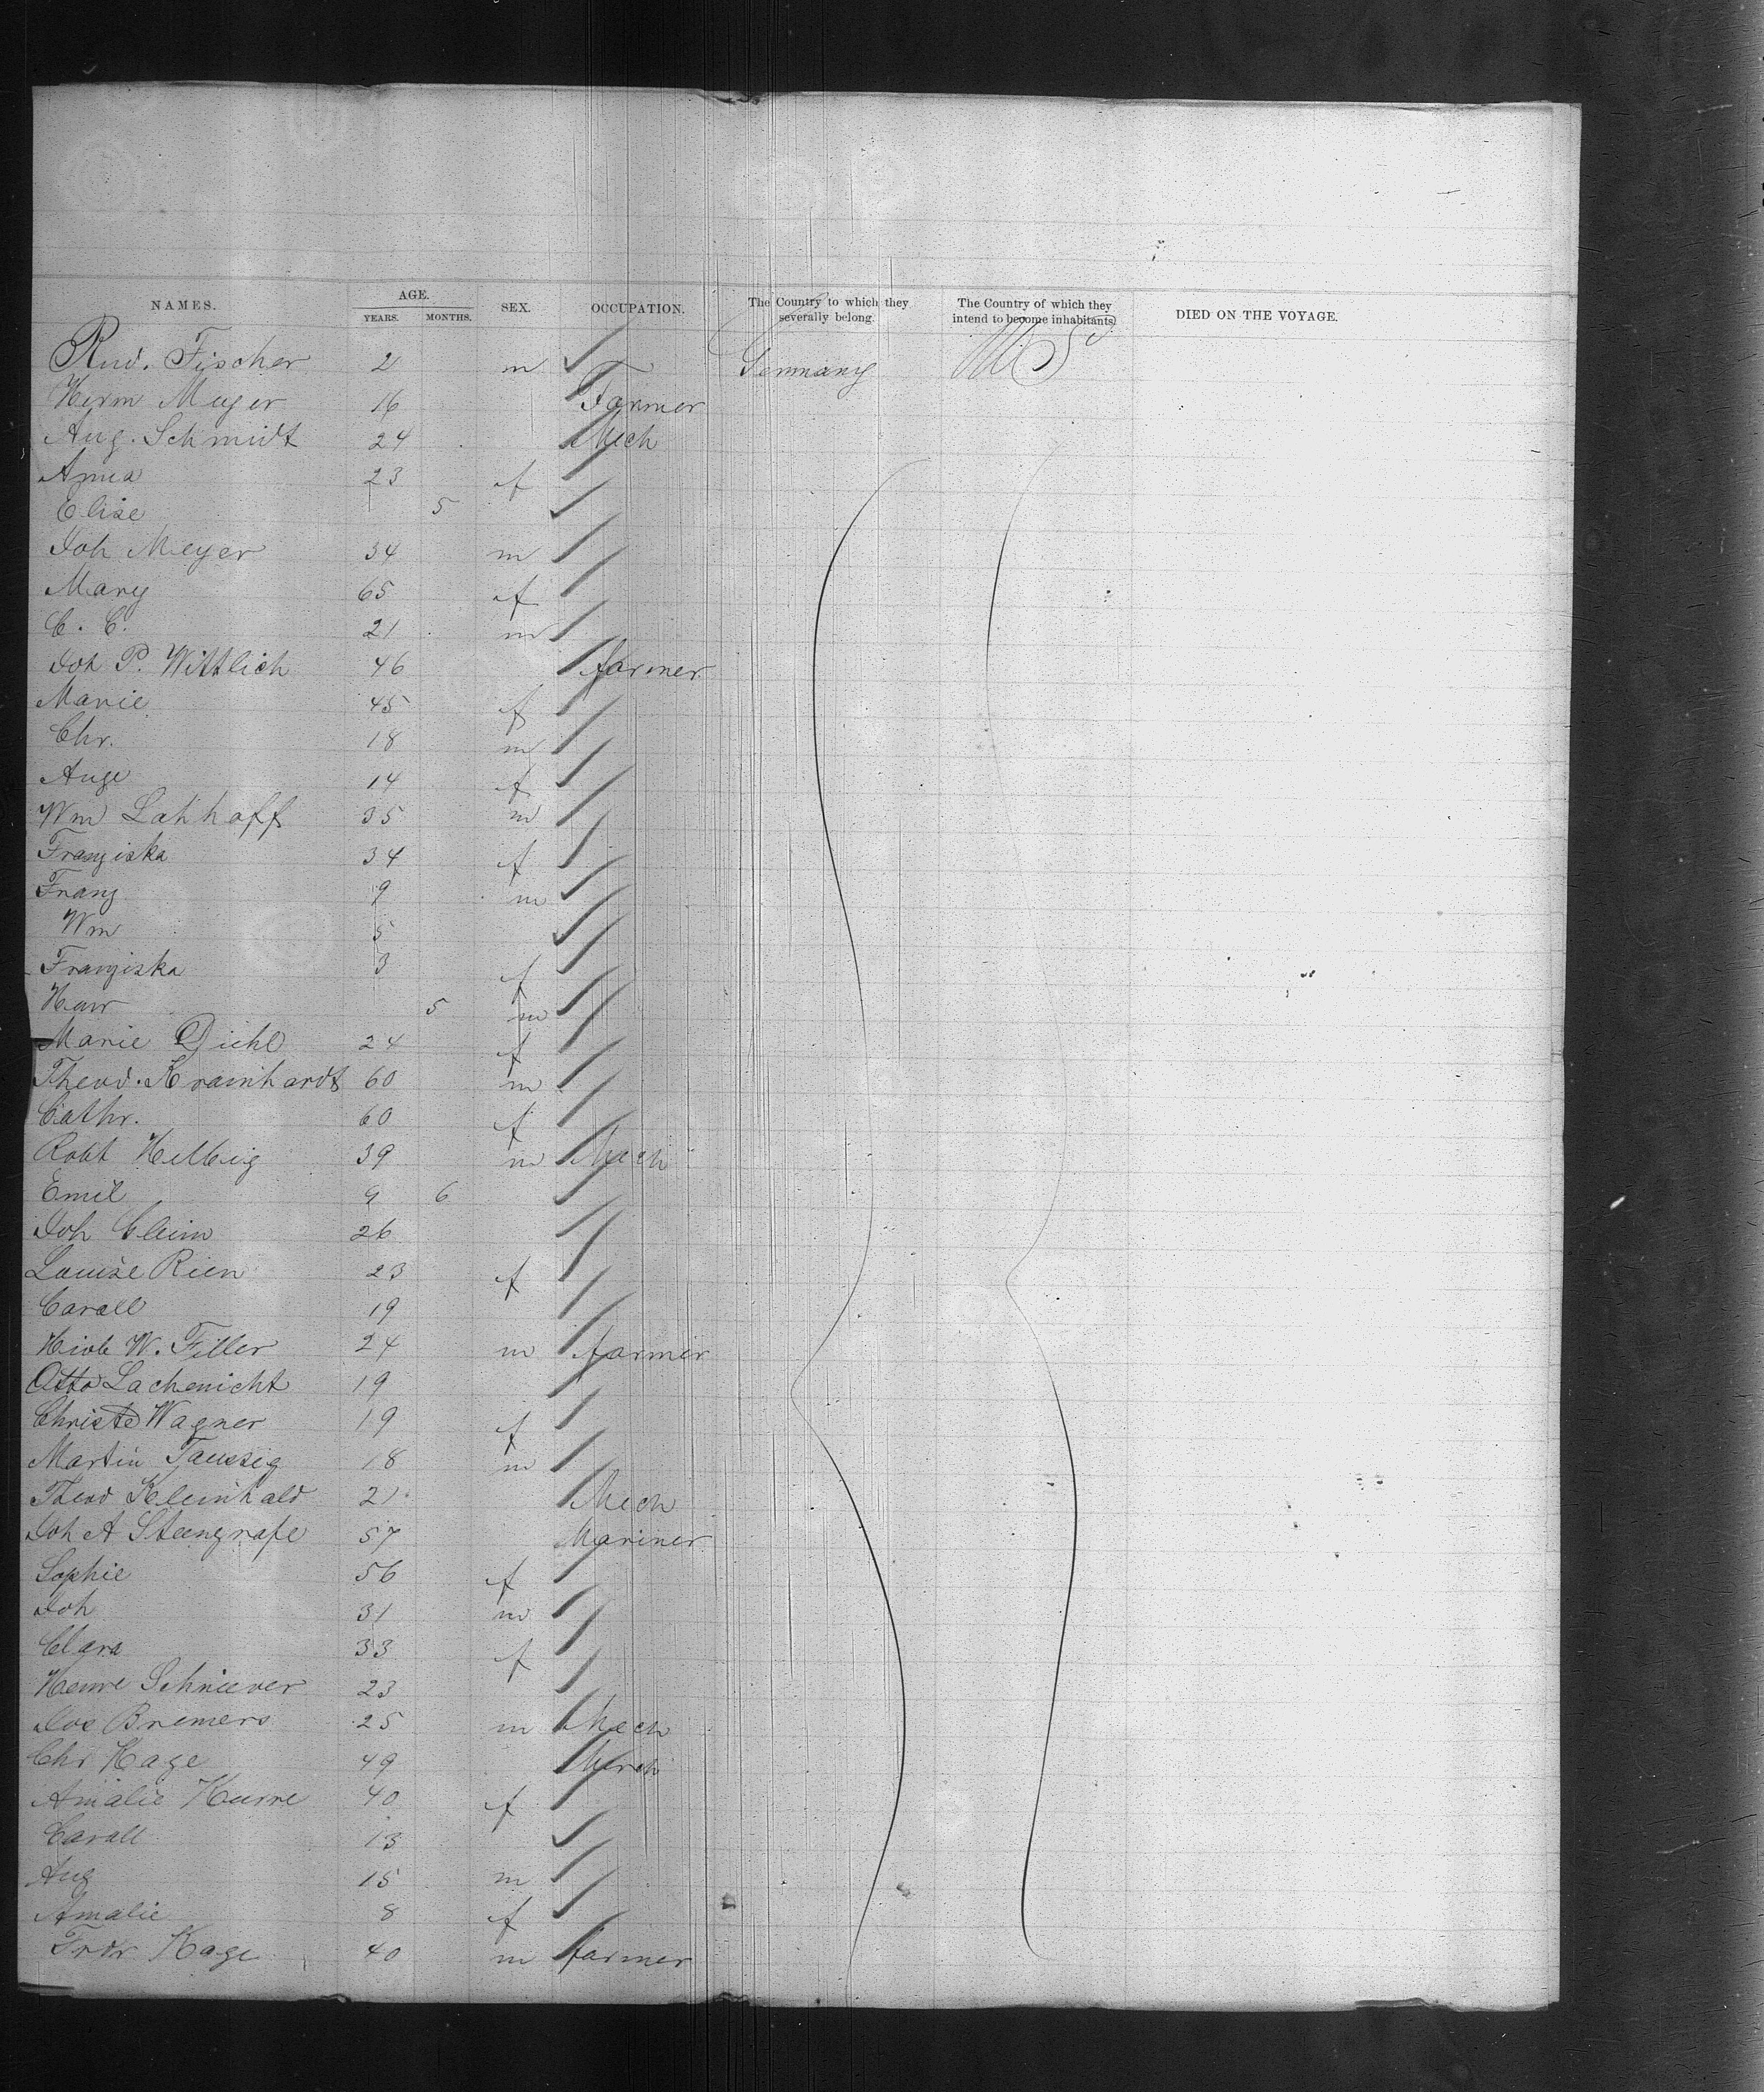 NAMES. AGE. SEX. OCCUPATION. The Country to which they severally belong. The Country of which they intend to become inhabitants. DIED ON THE VOYAGE.
YEARS. MONTHS.
Rud. Fischer 2 m Germany U S
Herm Meyer 16 Farmer
Aug. Schmidt 24 Mech
Anna 23 f
Elise 5
Joh Meyer 34 m
Mary 65 f
C. C. 21 m
Joh P. Wittlich 46 farmer
Marie 45 f
Chr. 18 m
Auge 14 f
Wm Lahhoff 35 m
Franziska 34 f
Franz 9 m
Wm 5
Franziska 3 f
Henr 5 m
Marie Diehl 24 f
Theod. Krainhardt 60 m
Cathr. 60 f
Robt Helbig 39 m Mech
Emil 9 6
Joh Cleim 26
Louise Rien 23 f
Caroll 19
W. Filler 24 m farmer
Otto Lachenicht 19
Christe Wagner 19 f
Martin Taussig 18 m
Theod Kleinhald 21 Mech
Joh A Steengrafe 57 Mariner
Sophie 56 f
Joh 31 m
Clara 33 f
Henre Schriever 23
Jos Bremers 25 m Mech
Chr Hage 49 Merch
Amalie Kurre 40 f
Caroll 13
Aug 15 m
Amalie 8 f
Frdr Hage 40 m farmer